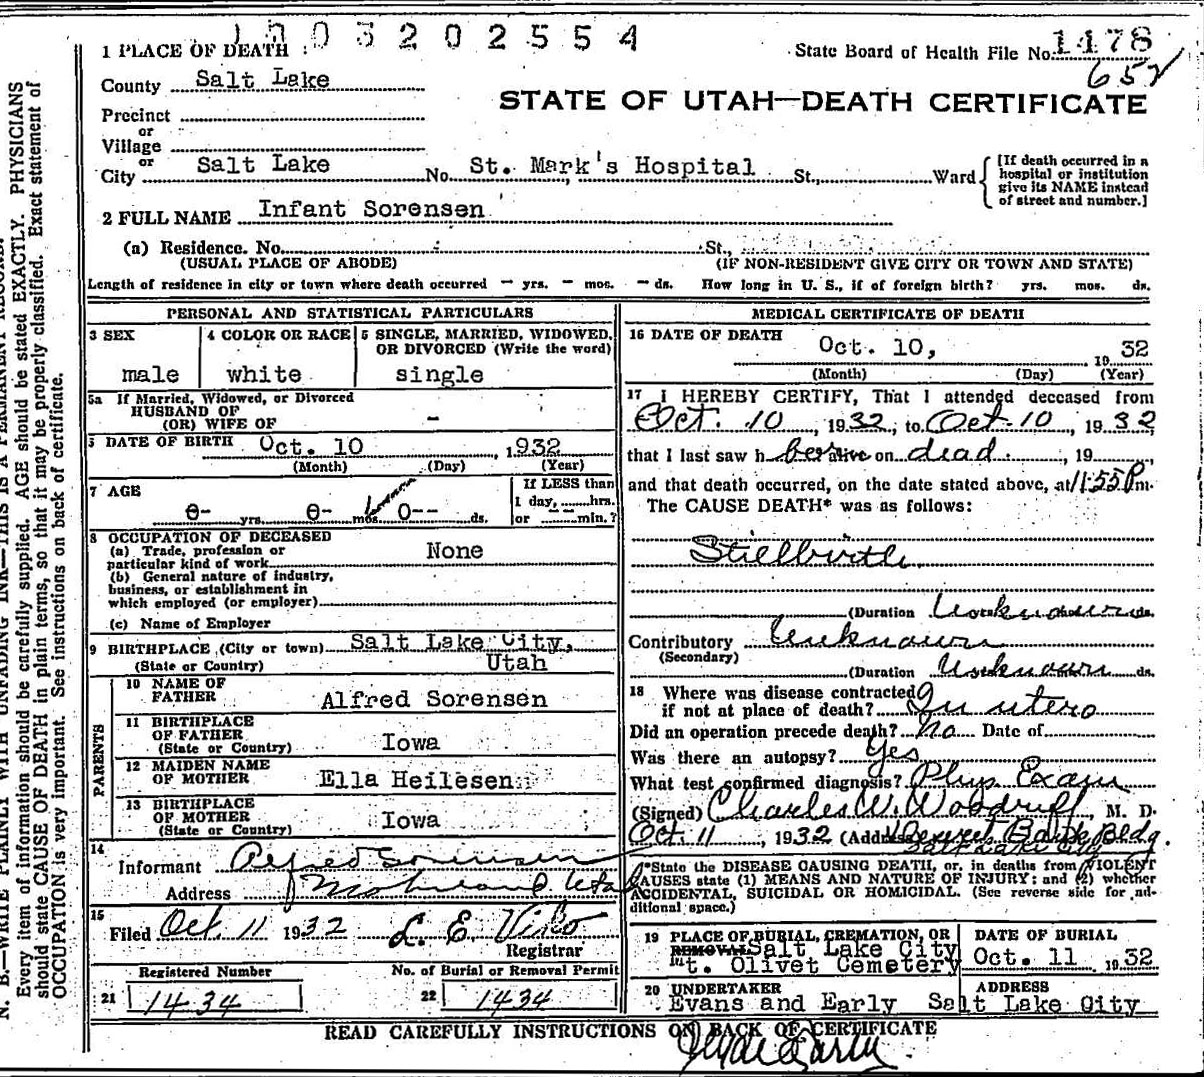 1003202554
1 PLACE OF DEATH
State Board of Health File No. 1478
652
County Salt Lake
STATE OF UTAH—DEATH CERTIFICATE
Precinct
or
Village
or
City Salt Lake No. St. Mark's Hospital St., Ward
[If death occurred in a
hospital or institution
give its NAME instead
of street and number.]
2 FULL NAME Infant Sorensen
(a) Residence. No. St.,
(USUAL PLACE OF ABODE) (IF NON-RESIDENT GIVE CITY OR TOWN AND STATE)
Length of residence in city or town where death occurred – yrs. – mos. – ds. How long in U. S., if of foreign birth? yrs. mos. ds.
PERSONAL AND STATISTICAL PARTICULARS
3 SEX
male
4 COLOR OR RACE
white
5 SINGLE, MARRIED, WIDOWED,
OR DIVORCED (Write the word)
single
5a If Married, Widowed, or Divorced
HUSBAND OF
(OR) WIFE OF –
DATE OF BIRTH Oct. 10, 1932
(Month) (Day) (Year)
7 AGE
0- yrs. 0- mos. 0-- ds.
If LESS than
1 day, hrs.
or -- min.?
8 OCCUPATION OF DECEASED
(a) Trade, profession or
particular kind of work None
(b) General nature of industry,
business, or establishment in
which employed (or employer)
(c) Name of Employer
9 BIRTHPLACE (City or town) Salt Lake City,
(State or Country) Utah
PARENTS
10 NAME OF
FATHER Alfred Sorensen
11 BIRTHPLACE
OF FATHER
(State or Country) Iowa
12 MAIDEN NAME
OF MOTHER Ella Heilesen
13 BIRTHPLACE
OF MOTHER
(State or Country) Iowa
14
Informant Alfred Sorensen
Address Moreland Utah
15
Filed Oct. 11 1932 L. E. Viko
Registrar
Registered Number
21 1434
No. of Burial or Removal Permit
22 1434
MEDICAL CERTIFICATE OF DEATH
16 DATE OF DEATH
Oct. 10, 1932
(Month) (Day) (Year)
17 I HEREBY CERTIFY, That I attended deceased from
Oct. 10, 1932, to Oct. 10, 1932
that I last saw h alive on dead, 19
and that death occurred, on the date stated above, at 11:55 P m.
The CAUSE DEATH* was as follows:
Stillbirth
(Duration Unknown ds.
Contributory Unknown
(Secondary)
(Duration Unknown ds.
18 Where was disease contracted
if not at place of death? In utero
Did an operation precede death? No Date of
Was there an autopsy? Yes
What test confirmed diagnosis? Phys. Exam
(Signed) Charles W. Woodruff, M. D.
Oct. 11, 1932 (Address) Deseret Bank Bldg.
Salt Lake City
*State the DISEASE CAUSING DEATH, or, in deaths from VIOLENT
CAUSES state (1) MEANS AND NATURE OF INJURY; and (2) whether
ACCIDENTAL, SUICIDAL OR HOMICIDAL. (See reverse side for ad-
ditional space.)
19 PLACE OF BURIAL, CREMATION, OR
REMOVAL Salt Lake City
Mt. Olivet Cemetery
DATE OF BURIAL
Oct. 11 1932
20 UNDERTAKER ADDRESS
Evans and Early Salt Lake City
READ CAREFULLY INSTRUCTIONS ON BACK OF CERTIFICATE
Clyde Early
N. B.—WRITE PLAINLY WITH UNFADING INK—THIS IS A PERMANENT RECORD.
Every item of information should be carefully supplied. AGE should be stated EXACTLY. PHYSICIANS
should state CAUSE OF DEATH in plain terms, so that it may be properly classified. Exact statement of
OCCUPATION is very important. See instructions on back of certificate.